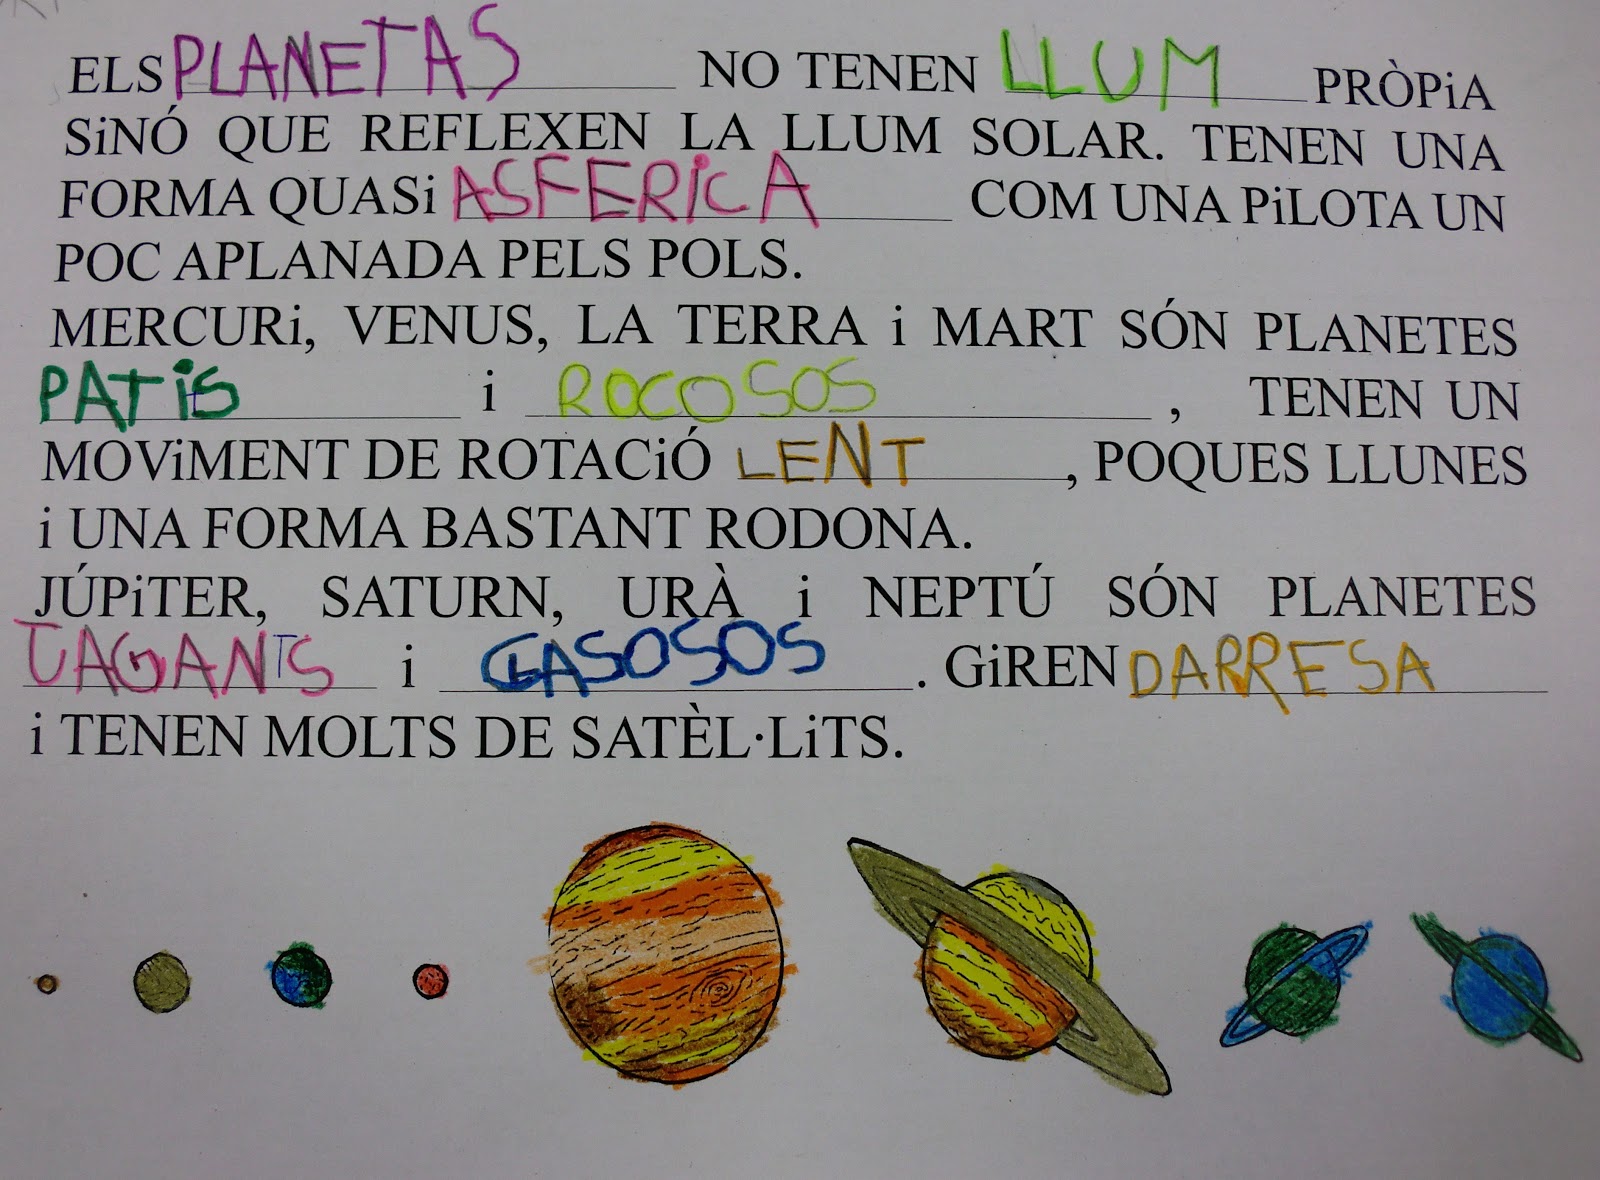 ELS PLANETAS NO TENEN LLUM PRÒPiA
SiNÓ QUE REFLEXEN LA LLUM SOLAR. TENEN UNA
FORMA QUASi ASFERiCA COM UNA PiLOTA UN
POC APLANADA PELS POLS.
MERCURi, VENUS, LA TERRA i MART SÓN PLANETES
PATiS i ROCOSOS, TENEN UN
MOViMENT DE ROTACiÓ LENT, POQUES LLUNES
i UNA FORMA BASTANT RODONA.
JÚPiTER, SATURN, URÀ i NEPTÚ SÓN PLANETES
JAGANTS i GASOSOS. GiREN DARRESA
i TENEN MOLTS DE SATÈL·LiTS.